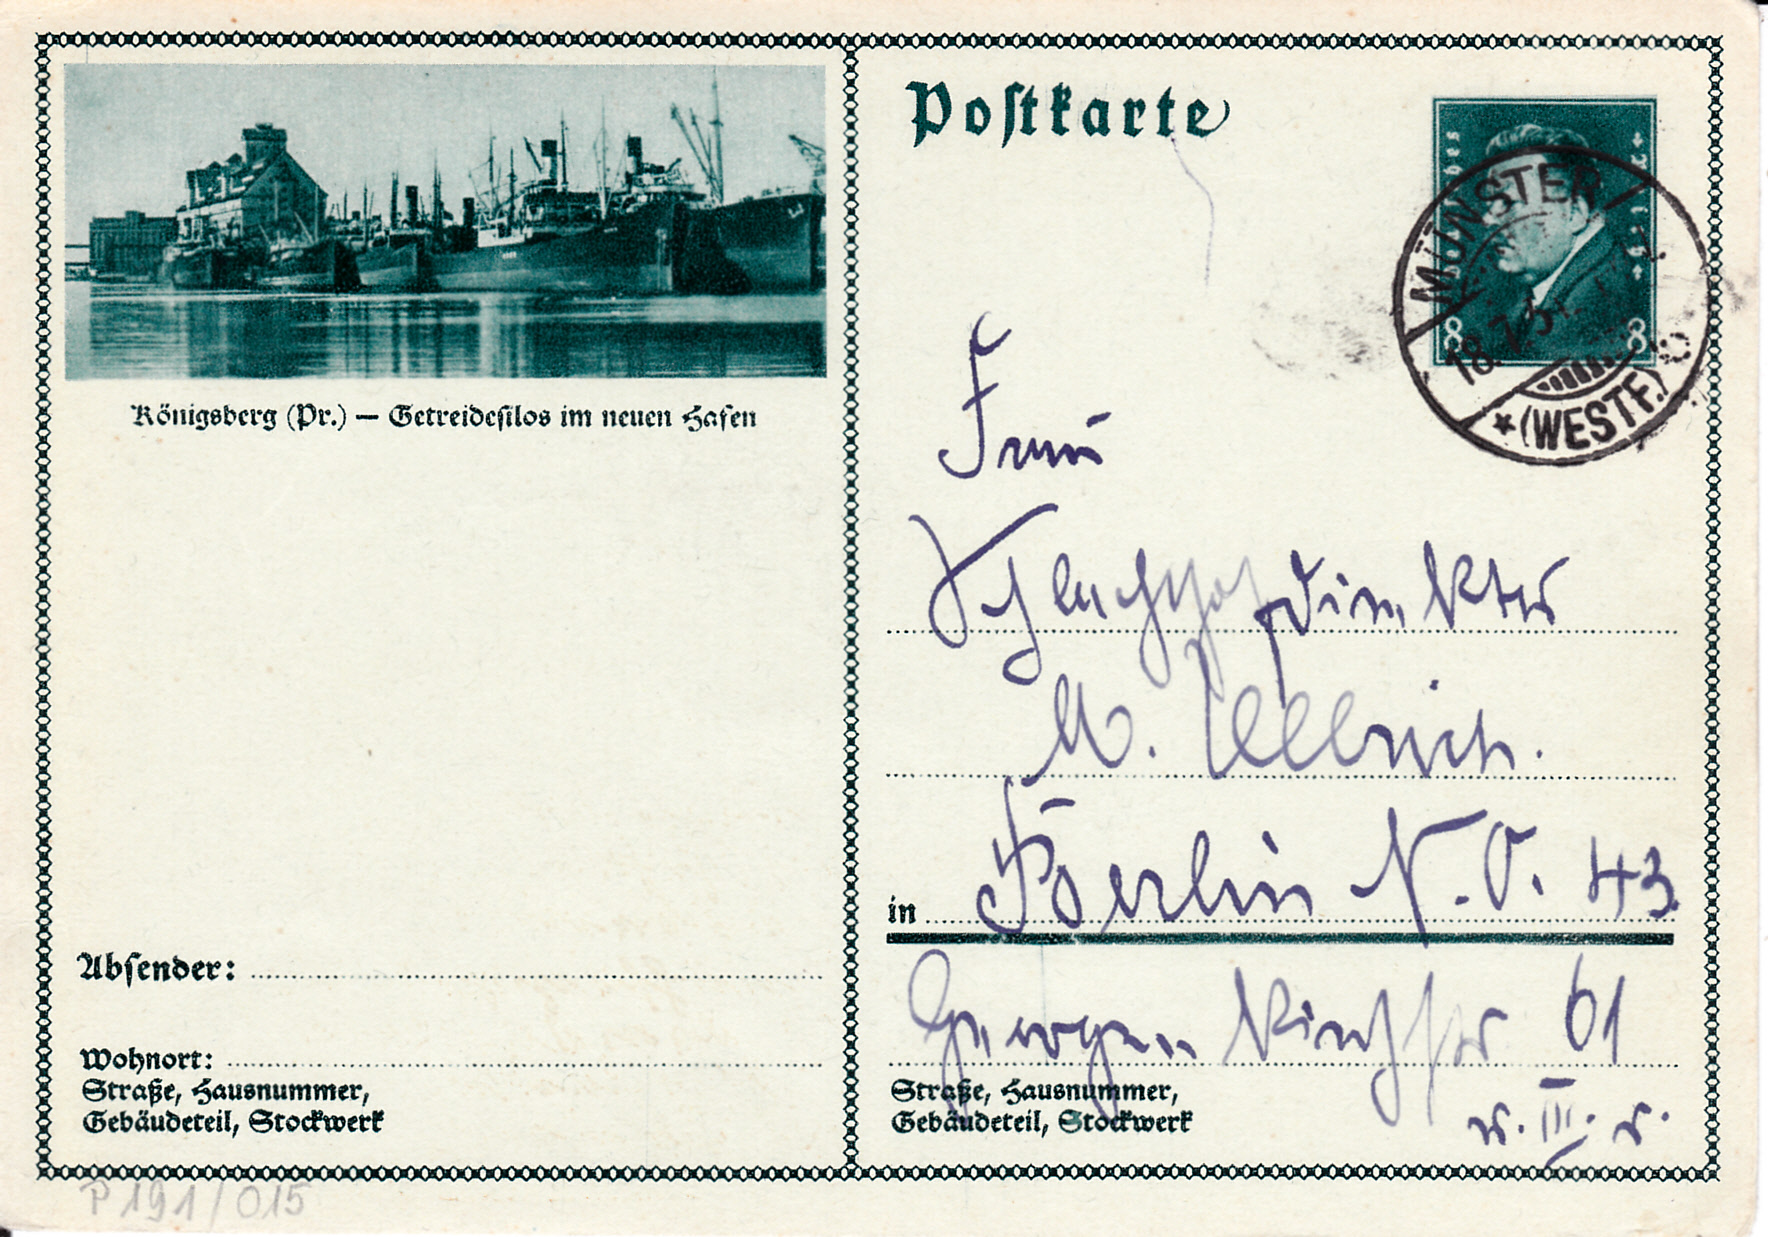 Postkarte
8 8
MÜNSTER
18.7.3
* (WESTF.)
Königsberg (Pr.) — Getreidesilos im neuen Hafen
Frau
Schlachthofdirektor
M. Ullrich.
in Berlin N.O. 43.
Georgenkirchstr 61
v. III. r.
Absender:
Wohnort:
Straße, Hausnummer,
Gebäudeteil, Stockwerk
Straße, Hausnummer,
Gebäudeteil, Stockwerk
P 191/015